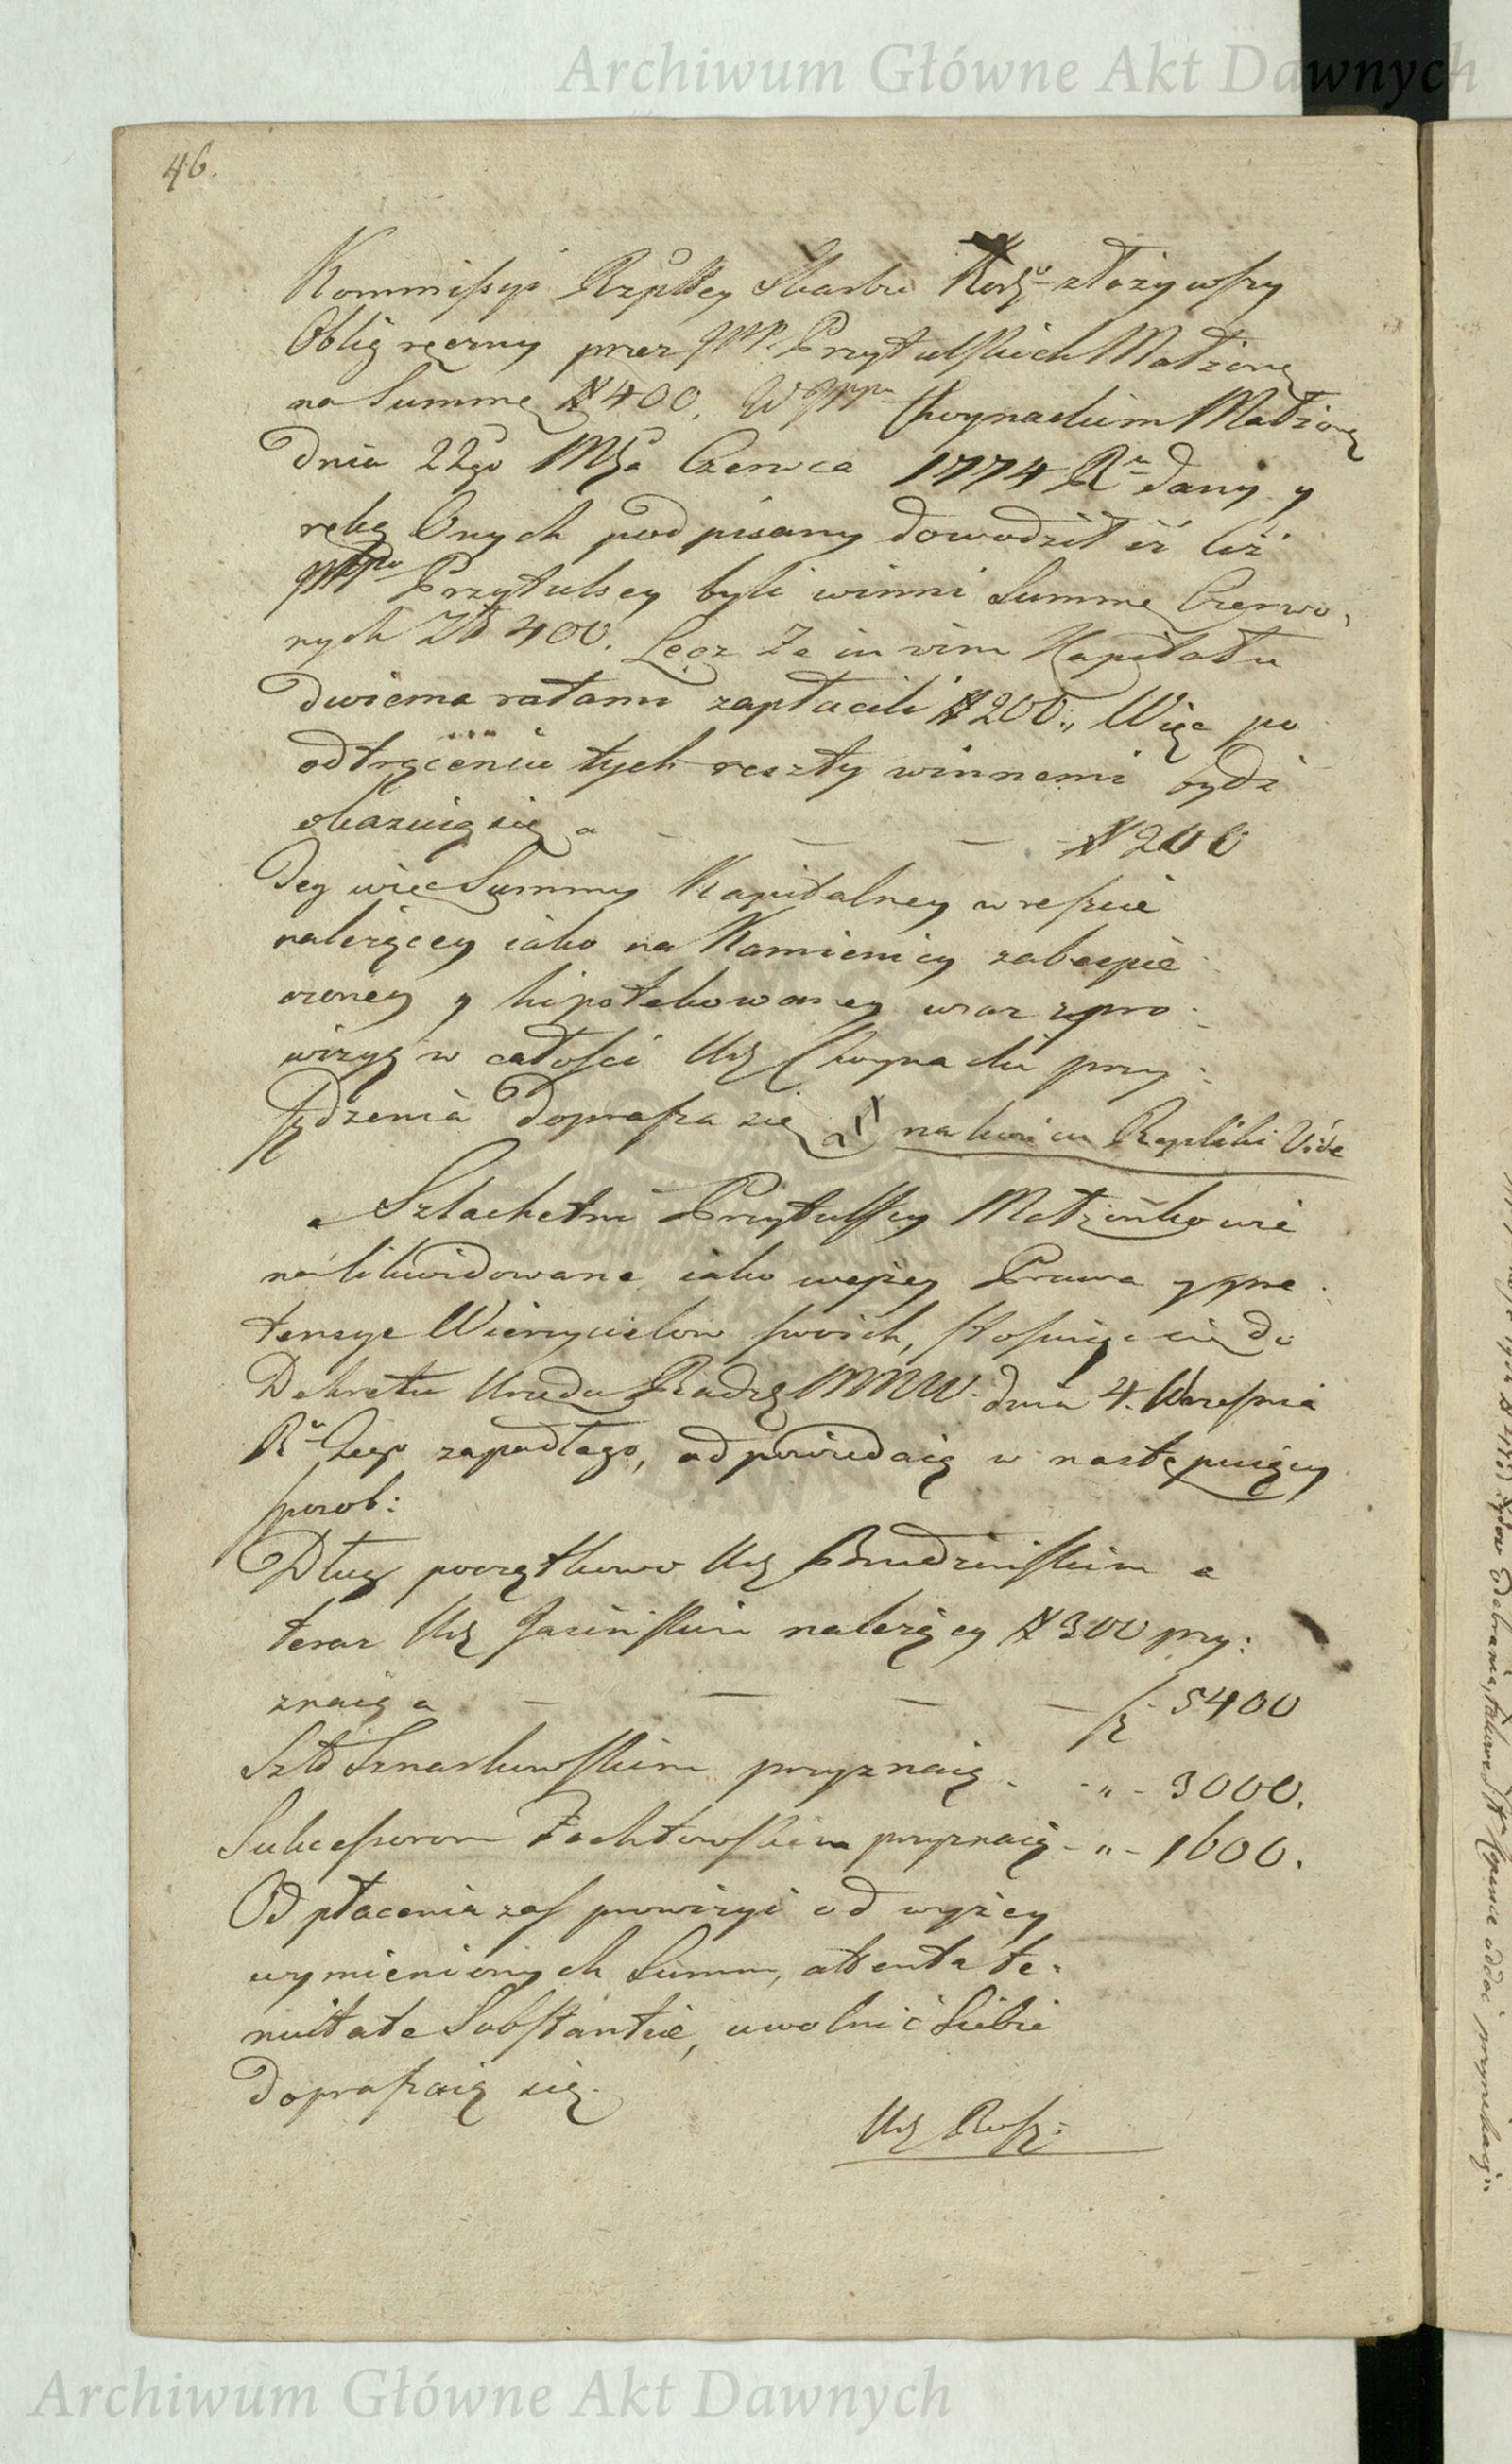 Archiwum Główne Akt Dawnych
46.
Kommissyi Rzpltey Skarbu złożywszy
Oblig ręczny przez Przytulskich Małżonę
na Summę # 400. W Chwynackim Małżonę
dnia 22go Msca Czerwca 1774 Ru dany y
ręką Onych podpisany dowodził iż Ciż
Przytulscy byli winni Summę Czerwo,
nych Zł 400. Lecz że in vim Kapitału
dwiema ratami zapłacili # 200., Więc po
odtrąceniu tych reszty winnemi bydź
okazuią się a — — — # 200
Tey więc Summy Kapitalney w reszcie
należącey iako na Kamienicy zabezpie
czoney y hipotekowaney wraz z pro:
wizyą w całości Ur Chwynacki przy:
sądzenia doprasza się X na końcu Repliki Vide
a Szlachetni Przytulscy Małżonkowie
na likwidowane iako wyżey Prawa y pre:
tensye Wierzycielow swoich, stosuiąc się do
Dekretu Urzędu Radz MMW. dnia 4. Września
Ru zapadłego, odpowiedaią w nastę puiący
sposob:
Dług początkowo Ur Brudzinskim a
teraz Ur Jasinskim należący # 300 przy:
znaią a — — — — f. 5400
Szl Sznarkowskim przyznaią - " - 3000.
Sukcessorom Żochłowskim przyznaią - " - 1600.
Od płacenia zaś prowizyi od wyżey
wymienionych Summ, attenta te:
nuitate Substantiæ, uwolnić Siebie
dopraszaią się.
Ur Rosz:
Archiwum Główne Akt Dawnych